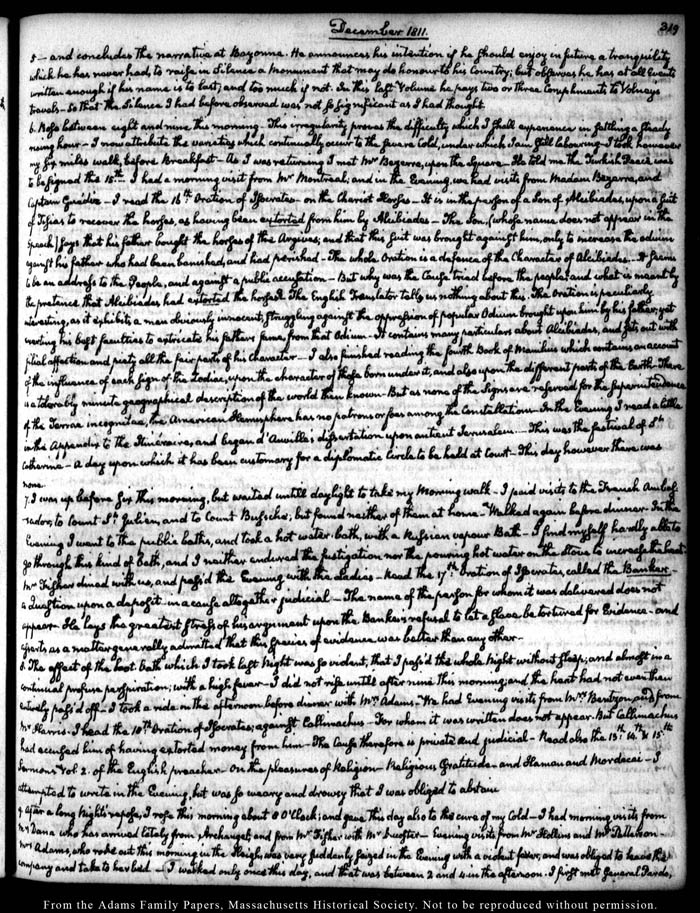 December 1811.
319
5 — and concludes the narrative at Bayonne. He announces his intention if he should enjoy in future a tranquility
which he has never had, to raise in Silence a Monument that may do honour to his Country; but observes he has at all Events
written enough if his name is to last; and too much if not. In this last Volume he pays two or three Compliments to Volney's
travels — So that the Silence I had before observed was not so significant as I had thought.
6. Rose between eight and nine this morning. This irregularity proves the difficulty which I shall experience in settling a steady
rising hour — I now attribute the varieties which continually occur to the severe cold, under which I am still labouring — I took however
my six miles walk, before Breakfast — As I was returning I met Mr Bezerra, upon the Square — He told me the Turkish Peace was
to be signed the 15th. I had a morning visit from Mr Montreal, and in the Evening, we had visits from Madam Bezerra, and
Captain Guédes — I read the 16th Oration of Isocrates — on the Chariot Horses — It is in the person of a Son of Alcibiades, upon a suit
of Tisias to recover the horses, as having been extorted from him by Alcibiades — The Son, (whose name does not appear in the
Speech) says that his father bought the horses of the Argives; and that this suit was brought against him, only to increase the odium
against his father who had been banished, and had perished — The whole Oration is a defence of the Character of Alcibiades — It seems
to be an address to the People, and against a public accusation — But why was the Cause tried before the people? and what is meant by
the pretence that Alcibiades had extorted the horses? The English Translator tells us nothing about this. The Oration is peculiarly
interesting, as it exhibits a man obviously innocent, struggling against the oppression of popular Odium brought upon him by his father; yet
exerting his best faculties to extricate his father's fame, from that Odium — It contains many particulars about Alcibiades, and sets out with
filial affection and piety all the fair parts of his character — I also finished reading the fourth Book of Manilius which contains an account
of the influence of each sign of the Zodiac, upon the character of those born under it, and also upon the different parts of the Earth — There
is a tolerably minute geographical description of the world then known — But as none of the Signs are referred for the Superintendence
of the Terrae incognitae, the American Hemisphere has no patrons or foes among the Constellations. In the Evening I read a little
in the Appendix to the Itinéraire, and began d'Anville's dissertation upon antient Jerusalem — This was the festival of St
Catherine — A day upon which it has been customary for a diplomatic Circle to be held at Court — This day however there was
none.
7. I was up before six this morning, but waited untill daylight to take my Morning walk — I paid visits to the French Ambas-
sador, to Count St Julien, and to Count Bussche; but found neither of them at home. Walked again before dinner. In the
Evening I went to the public baths, and took a hot water-bath, with a Russian vapour Bath — I find myself hardly able to
go through this kind of bath, and I neither endured the fustigation nor the pouring hot water on the stove to increase the heat
Mr Fisher dined with us, and pass'd the Evening with the Ladies — Read the 17th Oration of Isocrates, called the Banker —
a Question upon a deposit — in a cause altogether judicial — The name of the person for whom it was delivered does not
appear — He lays the greatest stress of his argument upon the Banker's refusal to let a slave be tortured for Evidence — and
asserts as a matter generally admitted that this species of evidence was better than any other —
8. The effect of the hot bath which I took last Night was so violent, that I pass'd the whole Night without sleep, and almost in a
continual profuse perspiration; with a high fever — I did not rise untill after nine this morning; and the heat had not even then
entirely pass'd off — I took a ride in the afternoon before dinner with Mrs Adams — We had Evening visits from Mrs Bentzon, and from
Mr Harris. I read the 18th Oration of Isocrates; against Callimachus — For whom it was written does not appear. But Callimachus
had accused him of having extorted money from him — The Cause therefore is private and judicial — Read also the 13th 14th & 15th
Sermons Vol. 2. of the English preacher — On the pleasures of Religion — Religious Gratitude — and Haman and Mordecai — I
attempted to write in the Evening, but was so weary and drowsy that I was obliged to abstain
9. After a long Night's repose, I rose this morning about 8 O'Clock; and gave this day also to the cure of my Cold — I had morning visits from
Mr Dana who has arrived lately from Archangel; and from Mr Fisher with Mr — Evening visits from Mr Hollins and Mr Patterson —
Mrs Adams, who rode out this morning in the Sleigh, was very suddenly seized in the Evening with a violent fever, and was obliged to leave the
company and take to her bed — (I walked only once this day, and that was between 2 and 4 in the afternoon. I first met General Pardo,
From the Adams Family Papers, Massachusetts Historical Society. Not to be reproduced without permission.